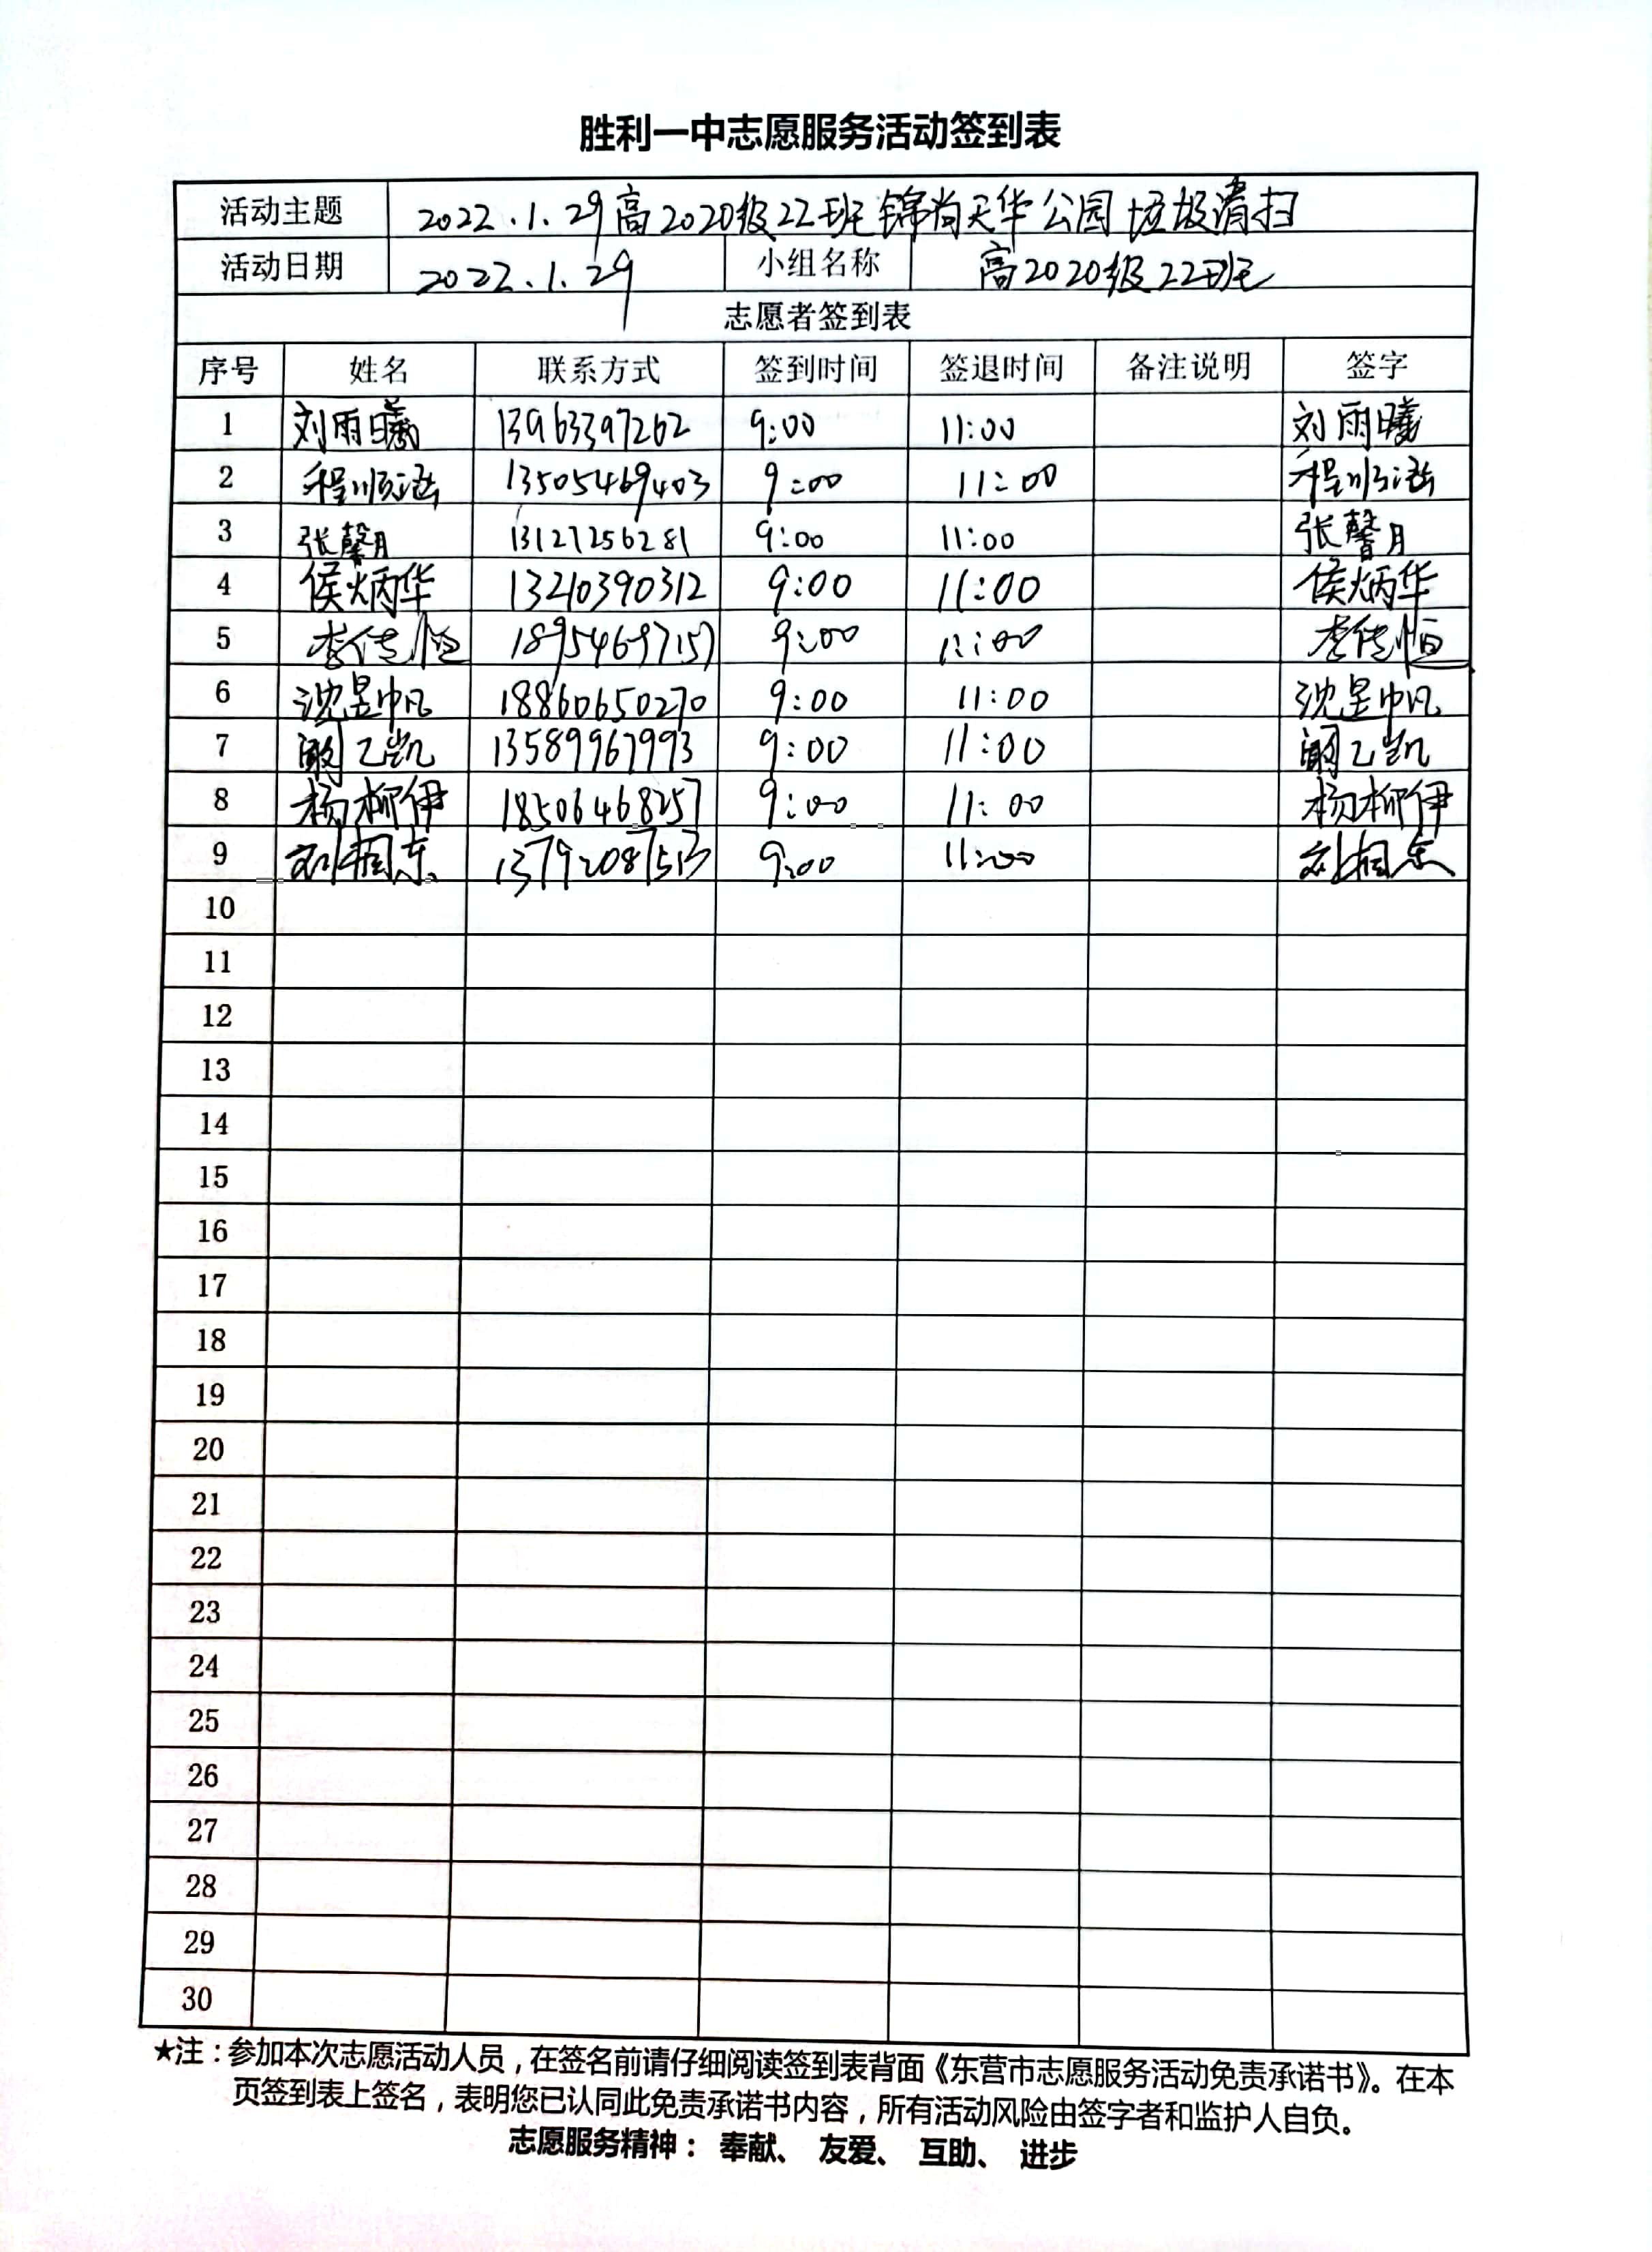 胜利一中志愿服务活动签到表
活动主题 2022.1.29高2020级22班锦尚天华公园垃圾清扫
活动日期 2022.1.29 小组名称 高2020级22班
志愿者签到表
序号 姓名 联系方式 签到时间 签退时间 备注说明 签字
1 刘雨曦 13963397262 9:00 11:00 刘雨曦
2 程顺涵 13505469403 9:00 11:00 程顺涵
3 张馨月 13127256281 9:00 11:00 张馨月
4 侯炳华 13210390312 9:00 11:00 侯炳华
5 李传恒 18954697157 9:00 11:00 李传恒
6 沈昱帆 18860650270 9:00 11:00 沈昱帆
7 乙凯 13589967993 9:00 11:00 乙凯
8 杨柳伊 18506468257 9:00 11:00 杨柳伊
9 刘桐东 13792087513 9:00 11:00 刘桐东
10
11
12
13
14
15
16
17
18
19
20
21
22
23
24
25
26
27
28
29
30
★注：参加本次志愿活动人员，在签名前请仔细阅读签到表背面《东营市志愿服务活动免责承诺书》。在本
页签到表上签名，表明您已认同此免责承诺书内容，所有活动风险由签字者和监护人自负。
志愿服务精神： 奉献、 友爱、 互助、 进步